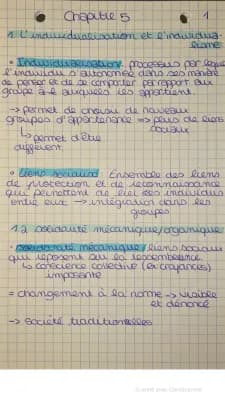 Chapitre 5 1
1. L'individualisation et l'individua-
lisme
• Individualisation: processus par lequel
l'individu s'autonomise dans ses manière
de penser et de se comporter par rapport aux
groupe à auxquels ils appartient.
→ permet de choisir de nouveaux
groupes d'appartenance → plus de liens
sociaux
↳ permet d'être
différent.
• Liens sociaux: Ensemble des liens
de protection et de reconnaissance
qui permettent de lier des individus
entre eux → intégration dans les
groupes
1.2 solidarité mécanique/organique
• Solidarité mécanique: liens sociaux
qui reposent sur la ressemblance.
↳ conscience collective (ex croyances)
imposante
= changement à la norme → visible
et dénoncé
→ société traditionnelles